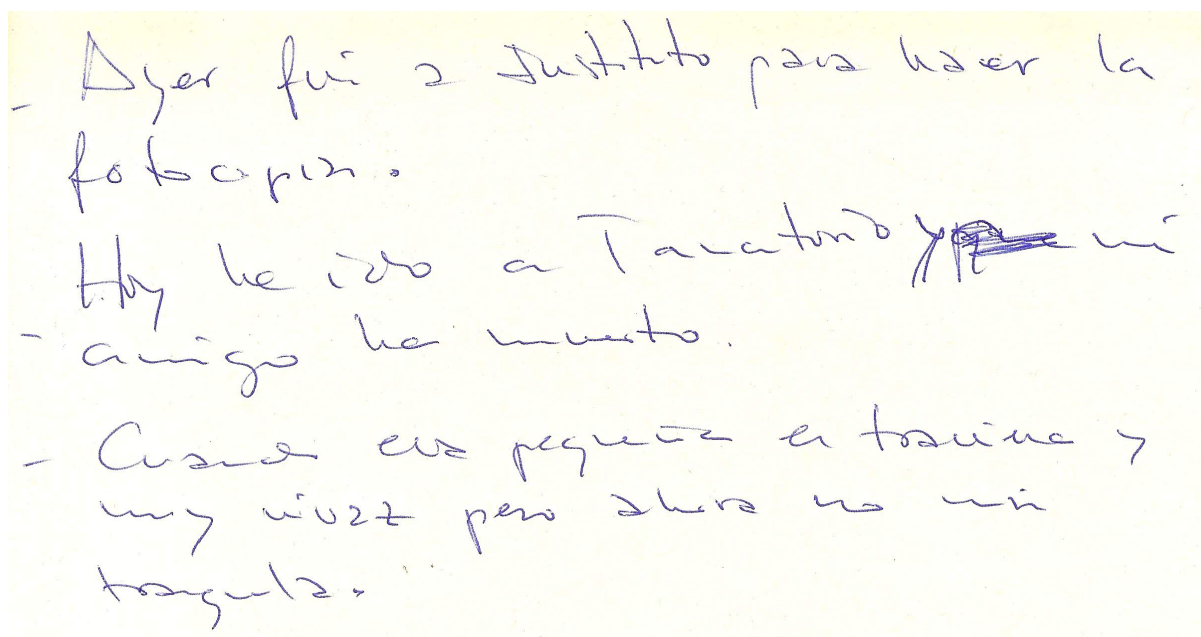 - Ayer fui a Instituto para hacer la
fotocopia.
Hoy he ido a Tanatorio y mi
- amigo ha muerto.
- Cuando era pequeña er y
muy vivaz pero ahora no